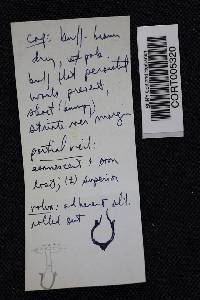 cap: buff-brown
dry, at pale
buff flat persistent
warts present,
short
striate near margin
partial veil:
evanescent & soon
lost; (±) superior
volva: adherent
rolled out
CORT005320